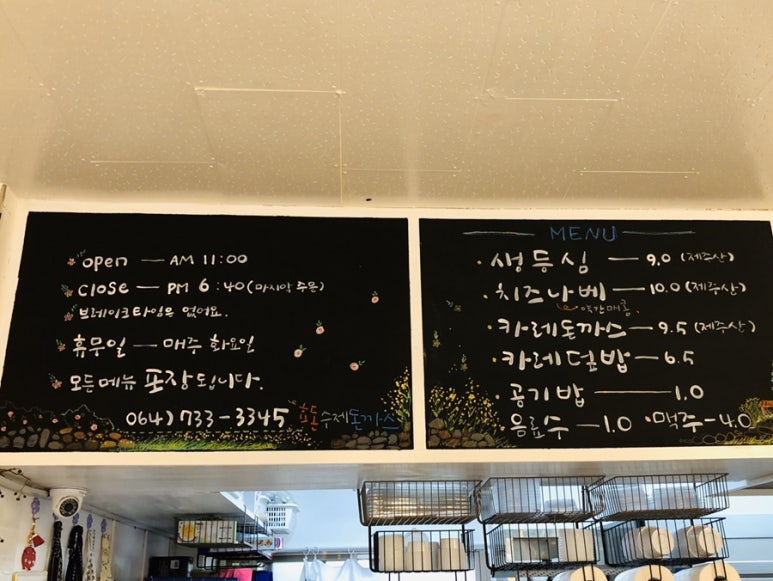 open — AM 11:00
close — PM 6:40 (마지막 주문)
브레이크타임은 없어요.
휴무일 — 매주 화요일
모든메뉴 포장됩니다.
064) 733-3345 흐돈 수제돈까스
MENU
생등심 — 9.0 (제주산)
치즈나베 — 10.0 (제주산)
약간매콤.
카레돈까스 — 9.5 (제주산)
카레덮밥 — 6.5
공기밥 — 1.0
음료수 — 1.0 ·맥주 - 4.0